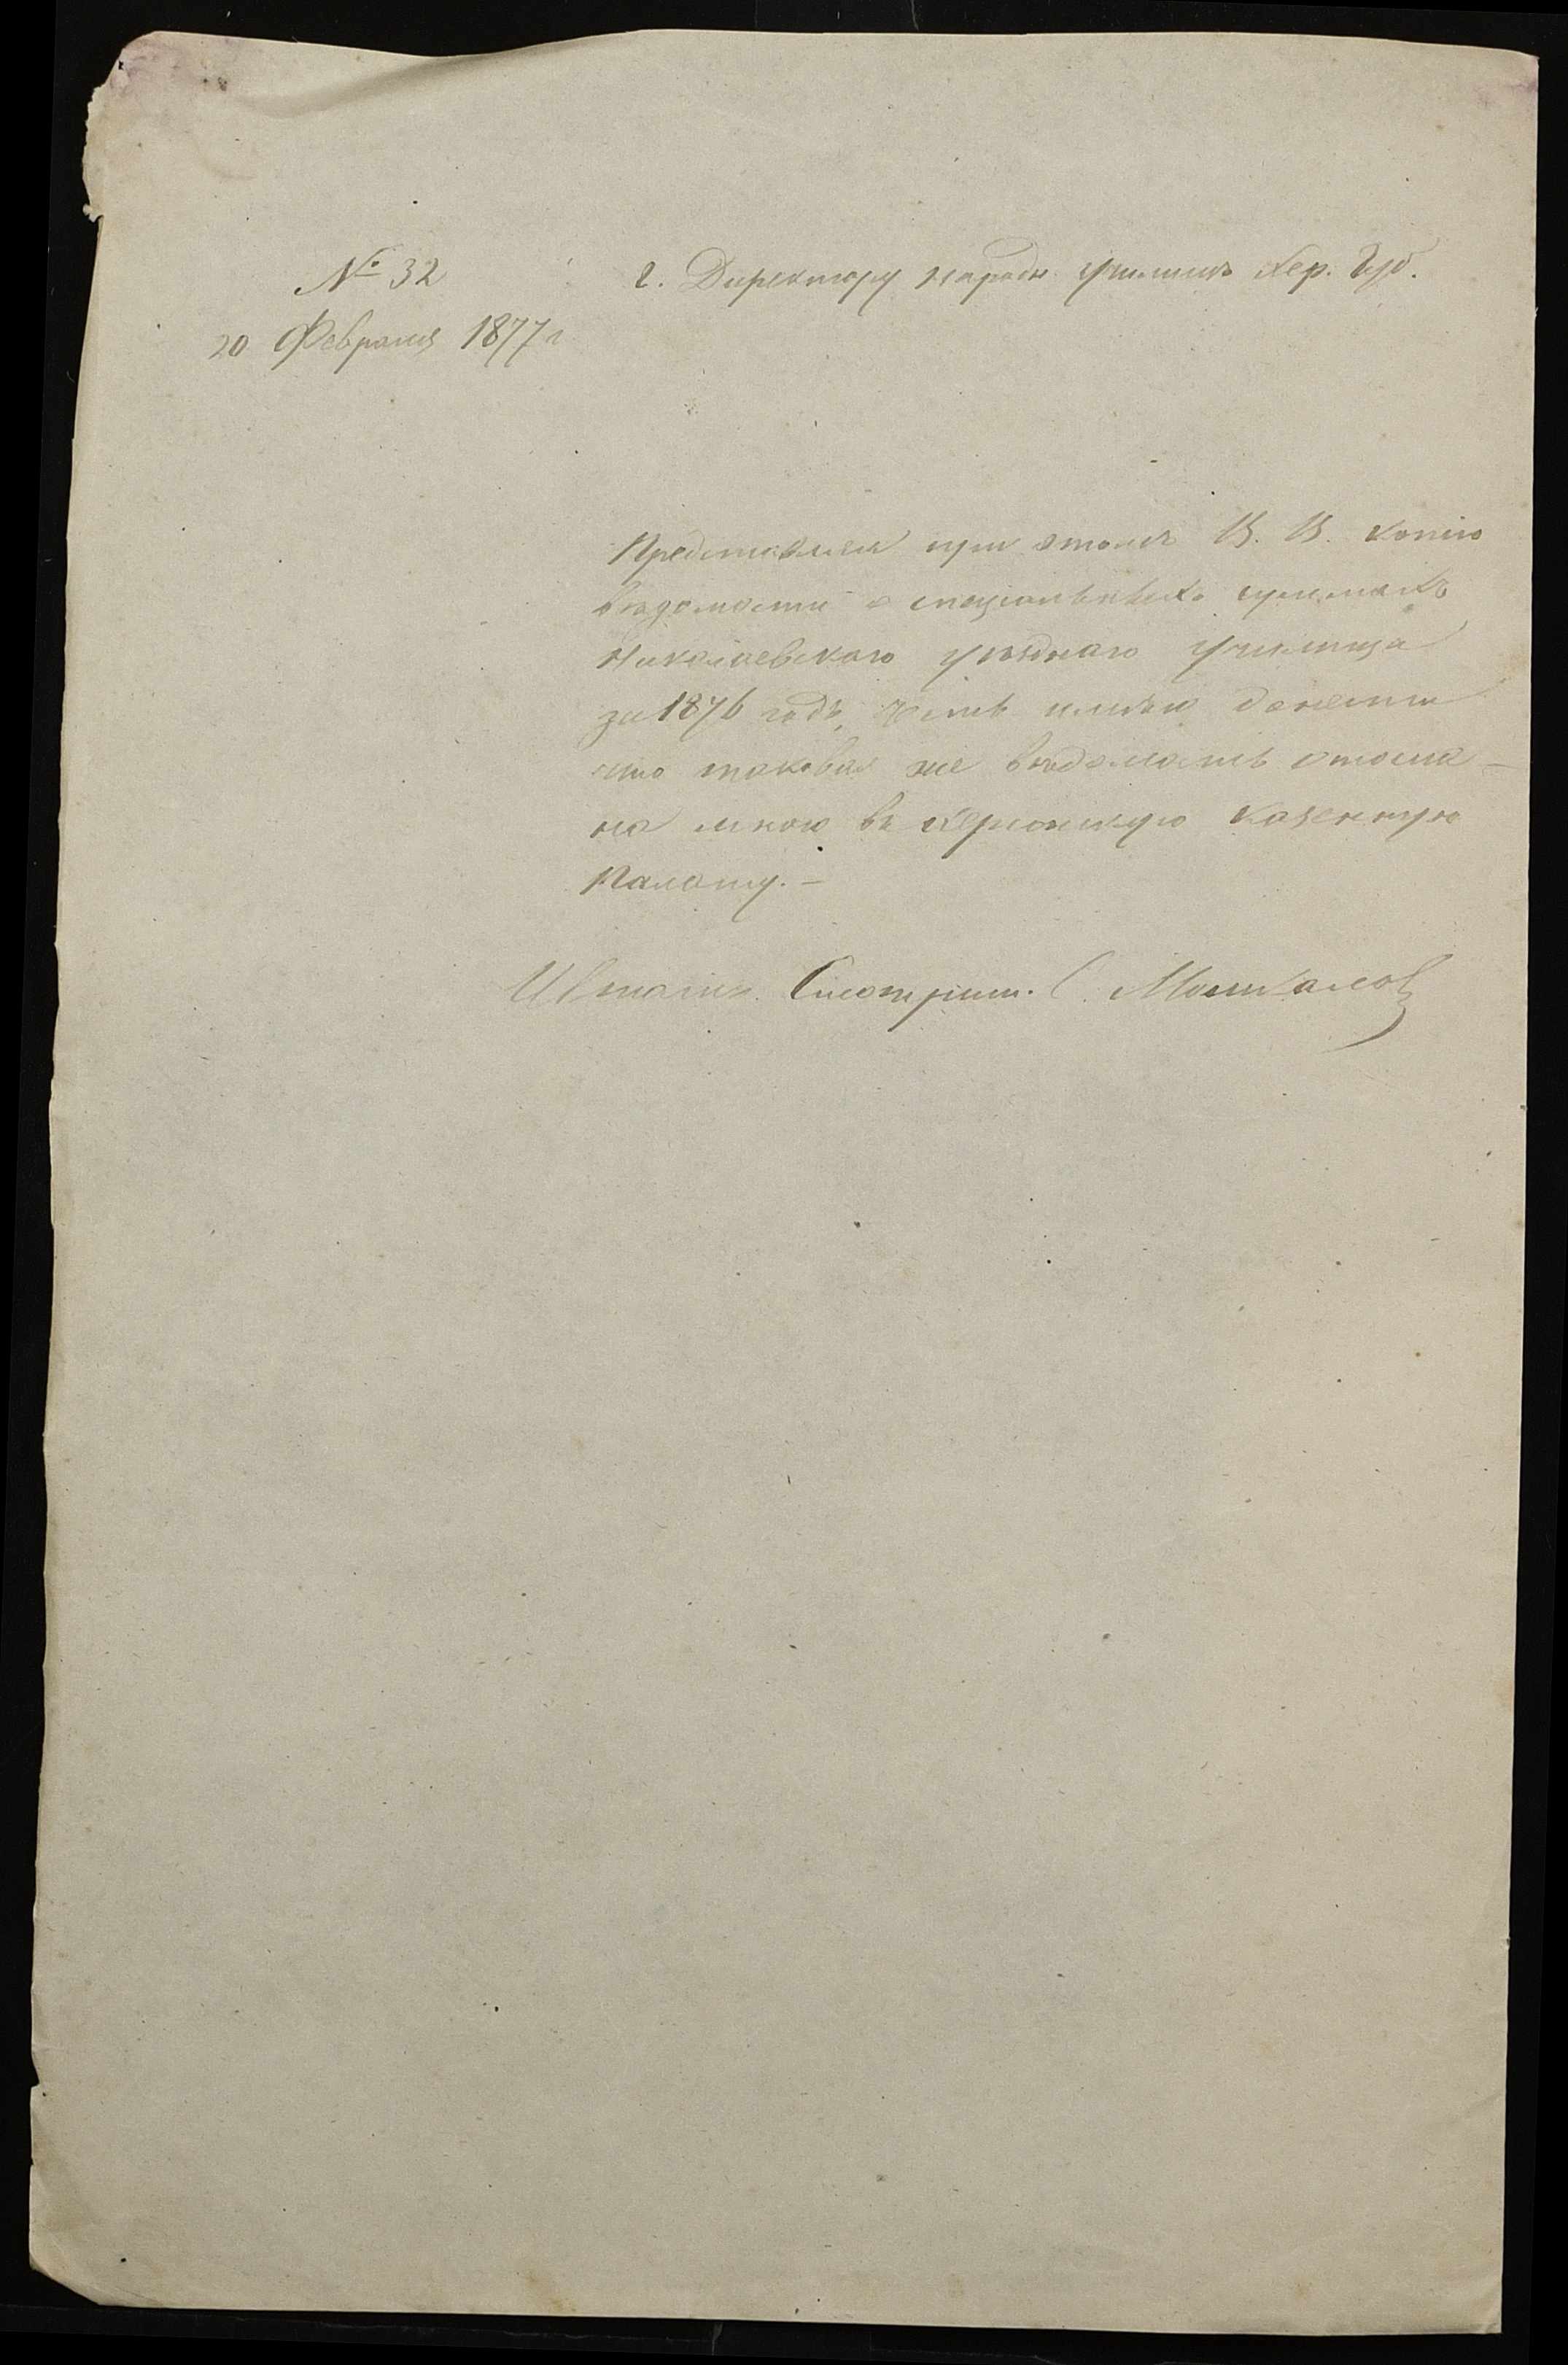 № 32
г. Директору народн. училищъ Хер. Губ.
20 Февраля 1877 г
Представляя при этомъ В. В. копію
вѣдомости о спеціальныхъ суммахъ
Николаевскаго уѣзднаго училища
за 1876 годъ, честь имѣю донести
что таковая же вѣдомость отосла-
на мною въ Херсонскую казенную
Палату. —
Штатн. Смотрит. С. Мошкалов